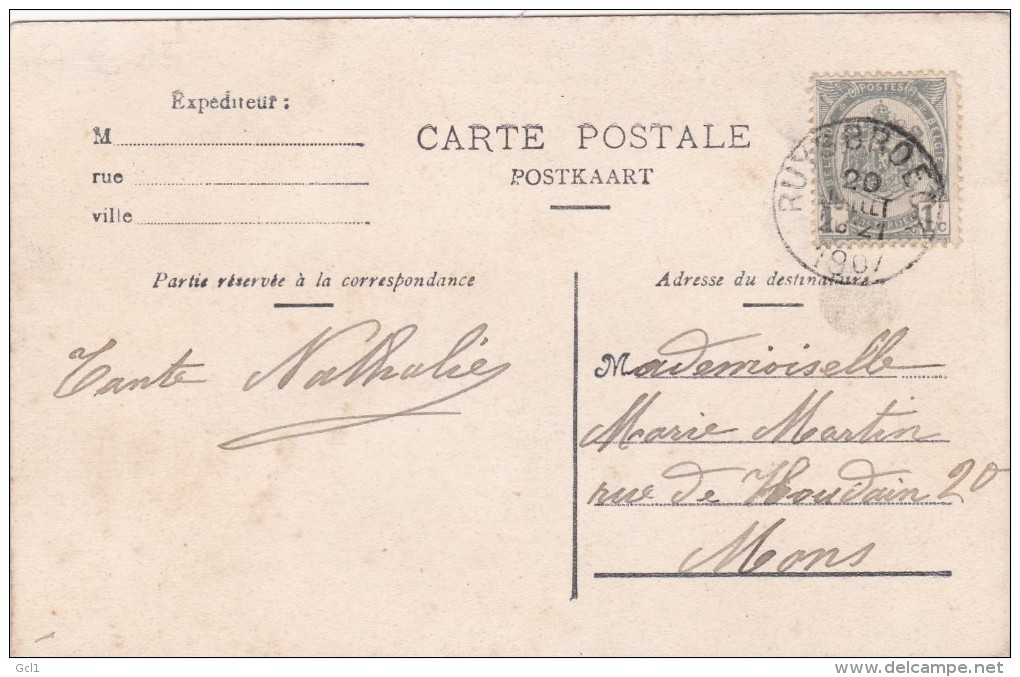 Expéditeur :
M
rue
ville
CARTE POSTALE
POSTKAART
POSTES
RUYSBROECK
20
JUILLET
18-21
1907
1c 1c
Partie réservée à la correspondance
Adresse du destinataire
Tante Nathalie
Mademoiselle
Marie Martin
rue de Houdain 20
Mons
Gcl1
http://www.delcampe.net